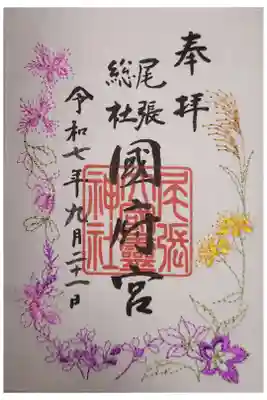 奉拝
尾張
総社
國府宮
令和七年九月二十一日
尾張
大國霊
神社